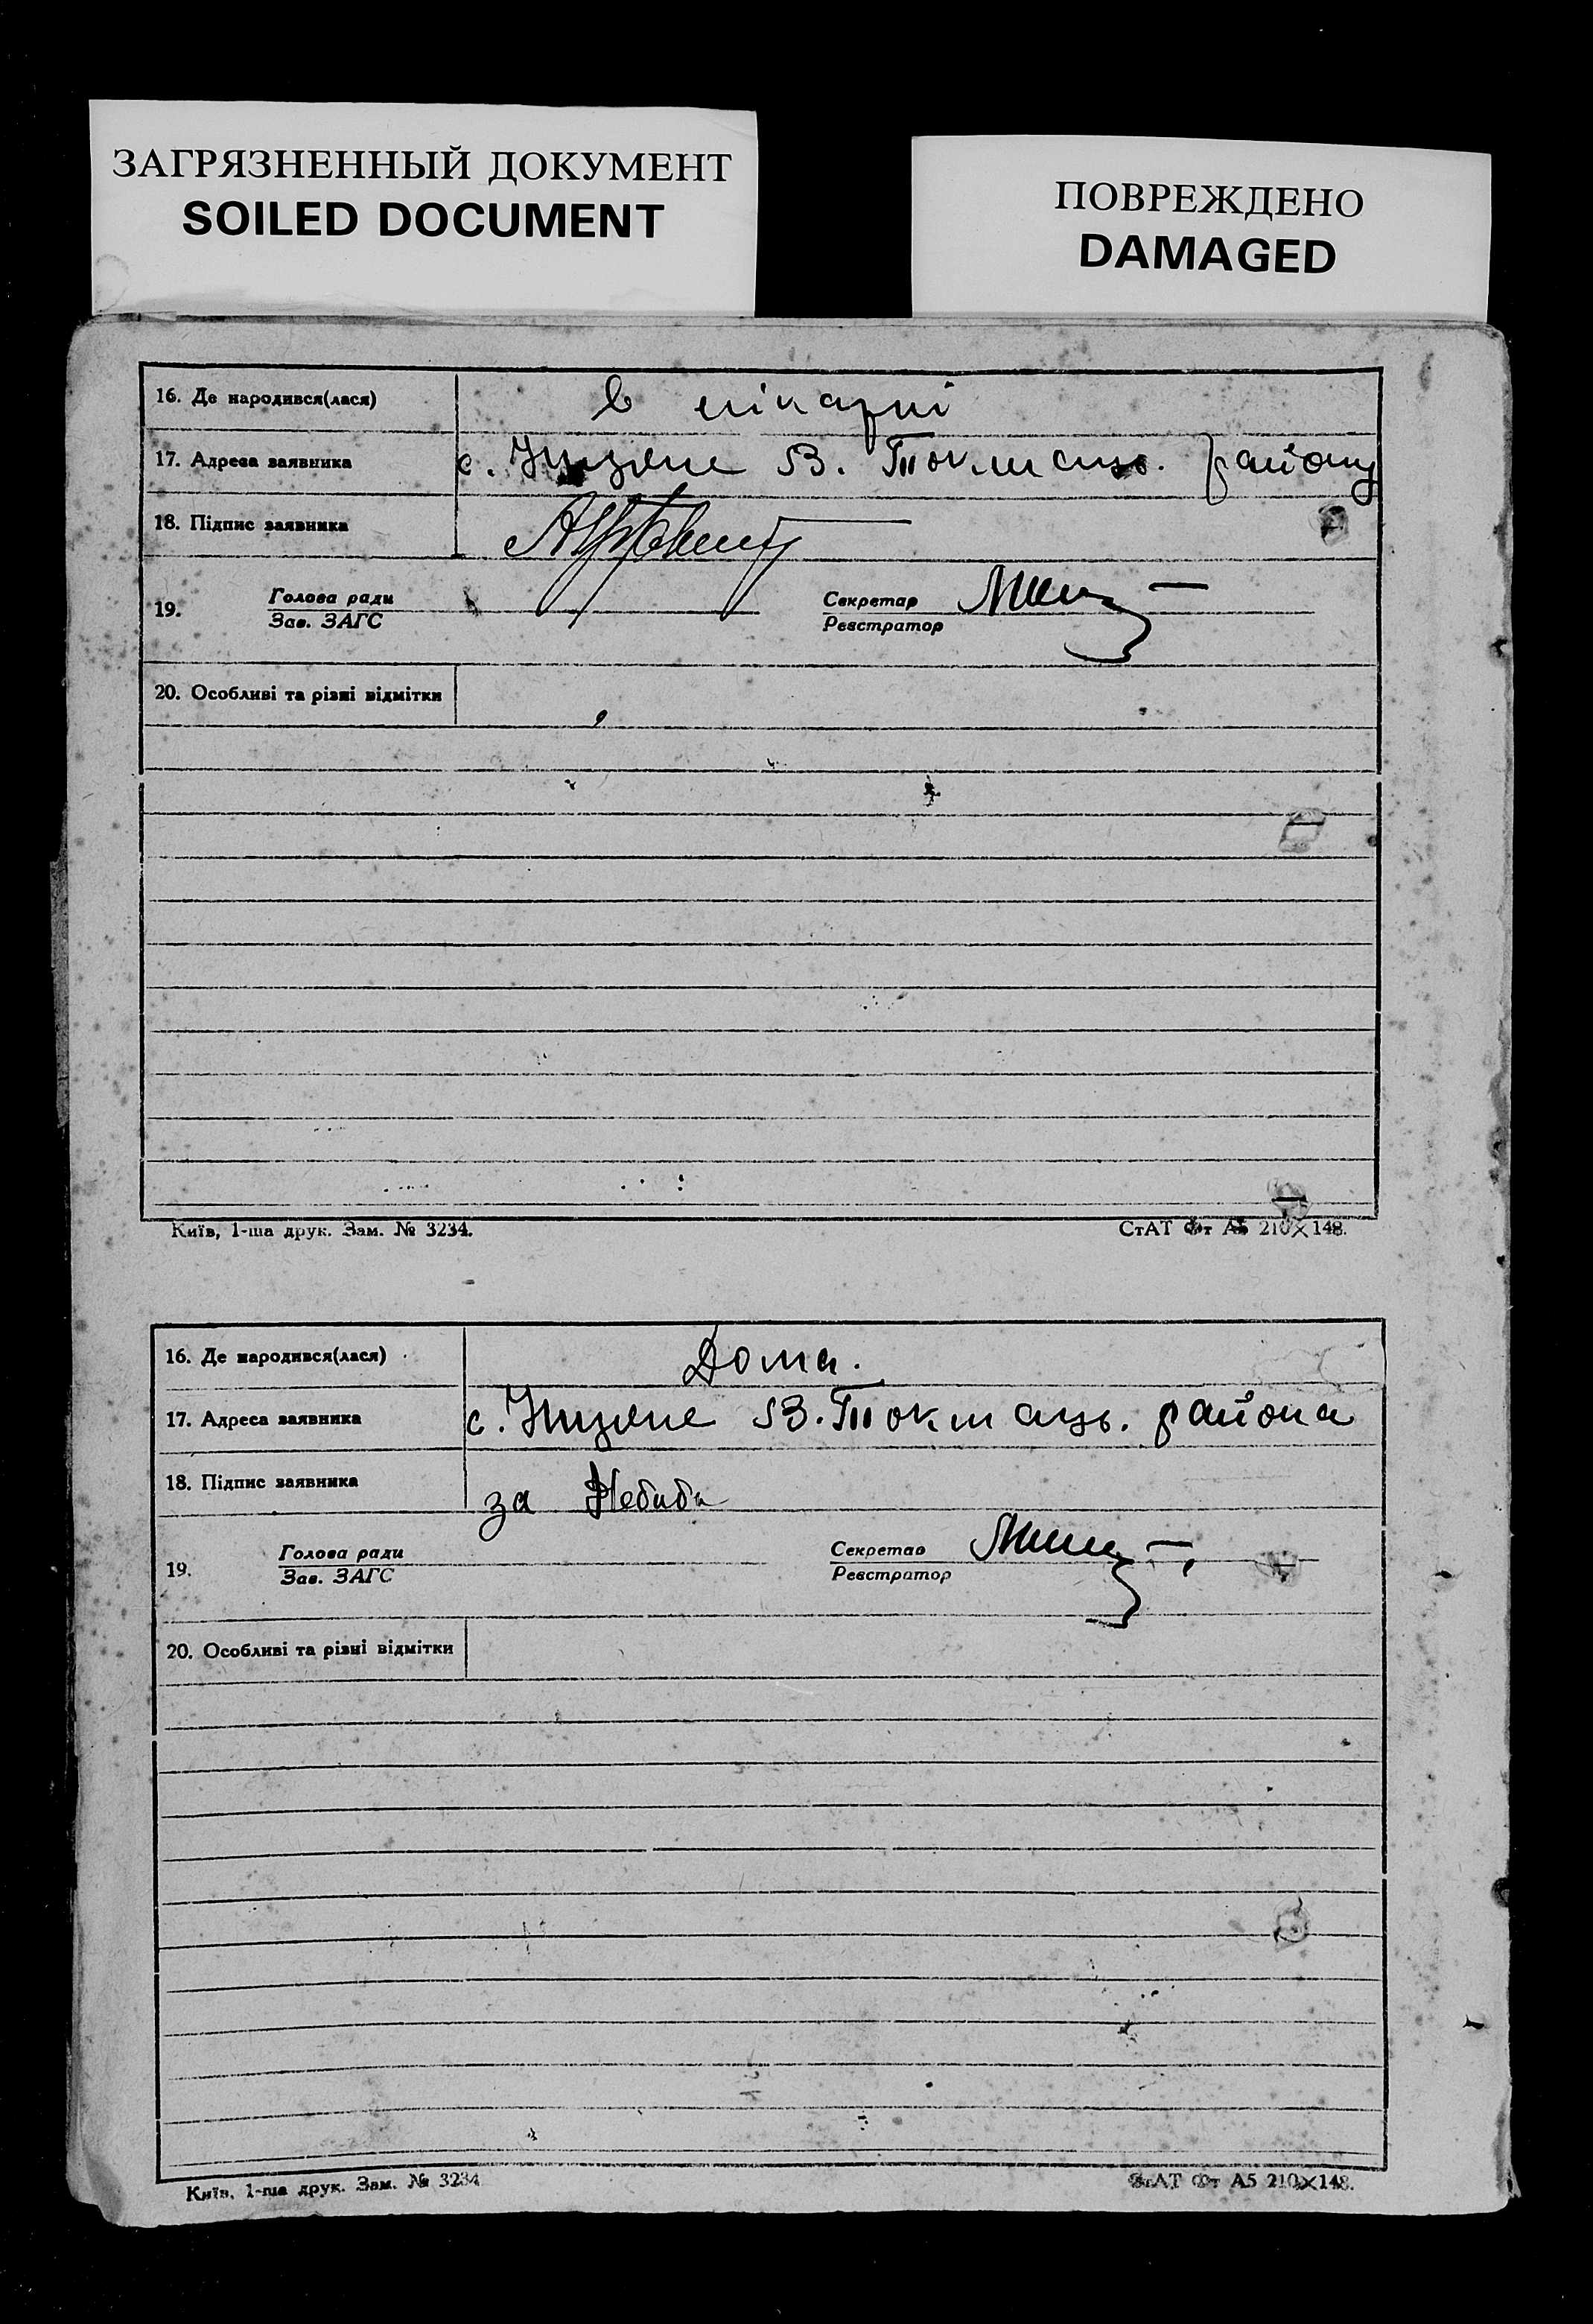 ЗАГРЯЗНЕННЫЙ ДОКУМЕНТ
SOILED DOCUMENT
ПОВРЕЖДЕНО
DAMAGED
16. Де народився(лася) в лікарні
17. Адреса заявника с. В. Токмацьк. району
18. Підпис заявника
19. Голова ради Секретар
Зав. ЗАГС Реєстратор
20. Особливі та різні відмітки
Київ, 1-ша друк. Зам. № 3234. СтАТ Фт А5 210×148.
16. Де народився(лася) Дома.
17. Адреса заявника с. В. Токмацьк. района
18. Підпис заявника за
19. Голова ради Секретар
Зав. ЗАГС Реєстратор
20. Особливі та різні відмітки
Київ, 1-ша друк. Зам. № 3234 СтАТ Фт А5 210×148.